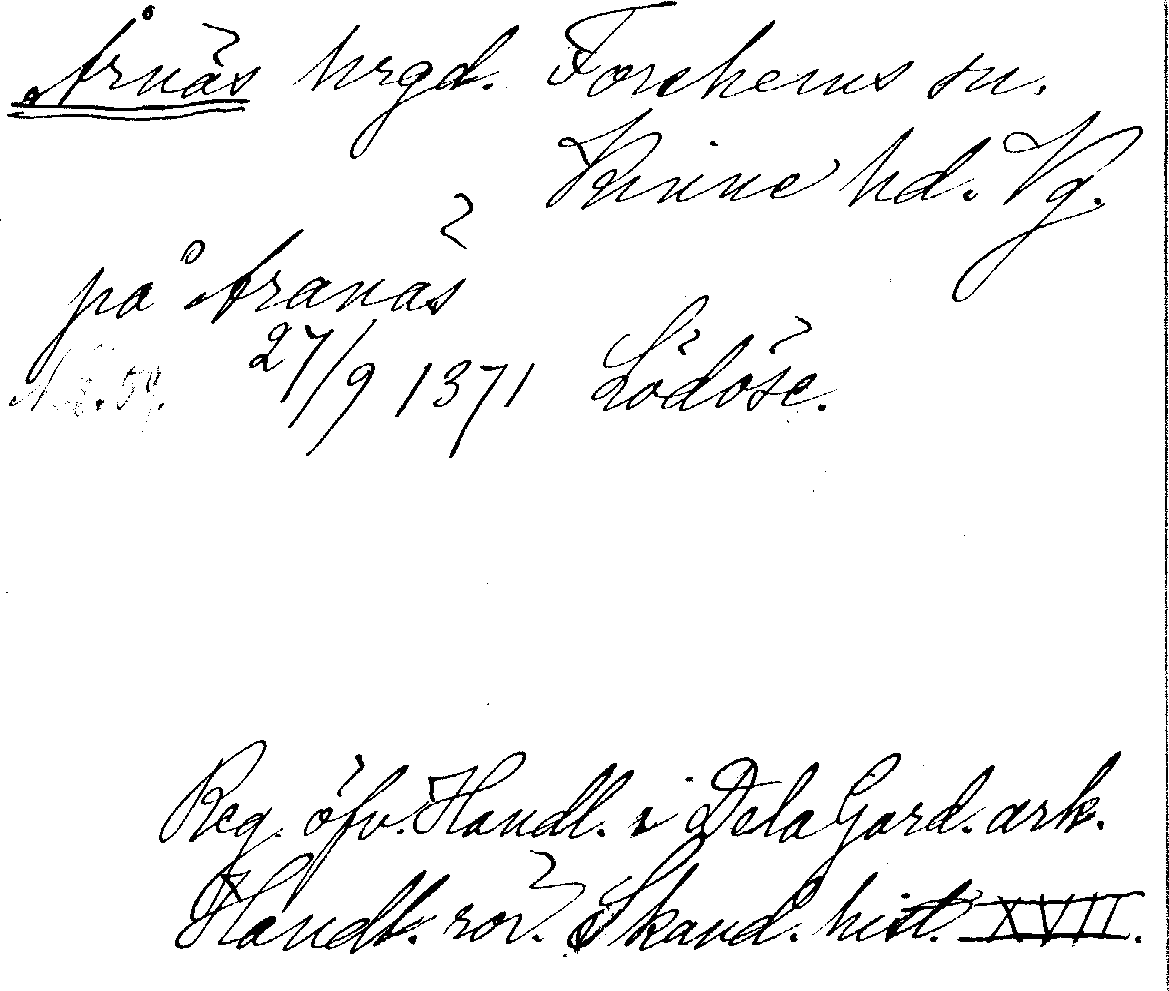 Årnäs hrgd. Forshems sn.
Kinne hd. Vg.
på Aranäs
27/9 1371 Lödöse.
Reg. öfv. Handl. i DelaGard. ark.
Handl. rör. Skand. hist. XVII.